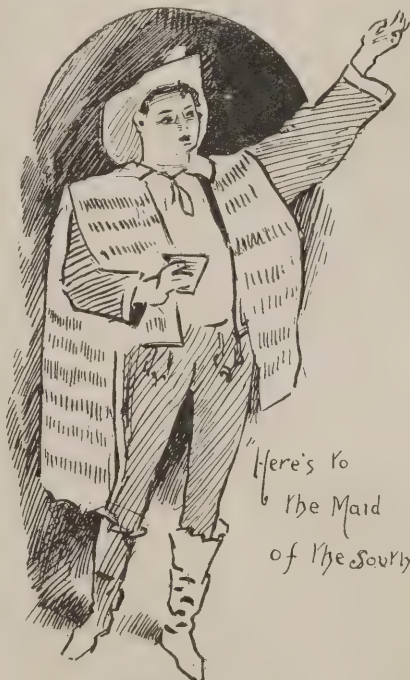 "Here's to
the Maid
of the South